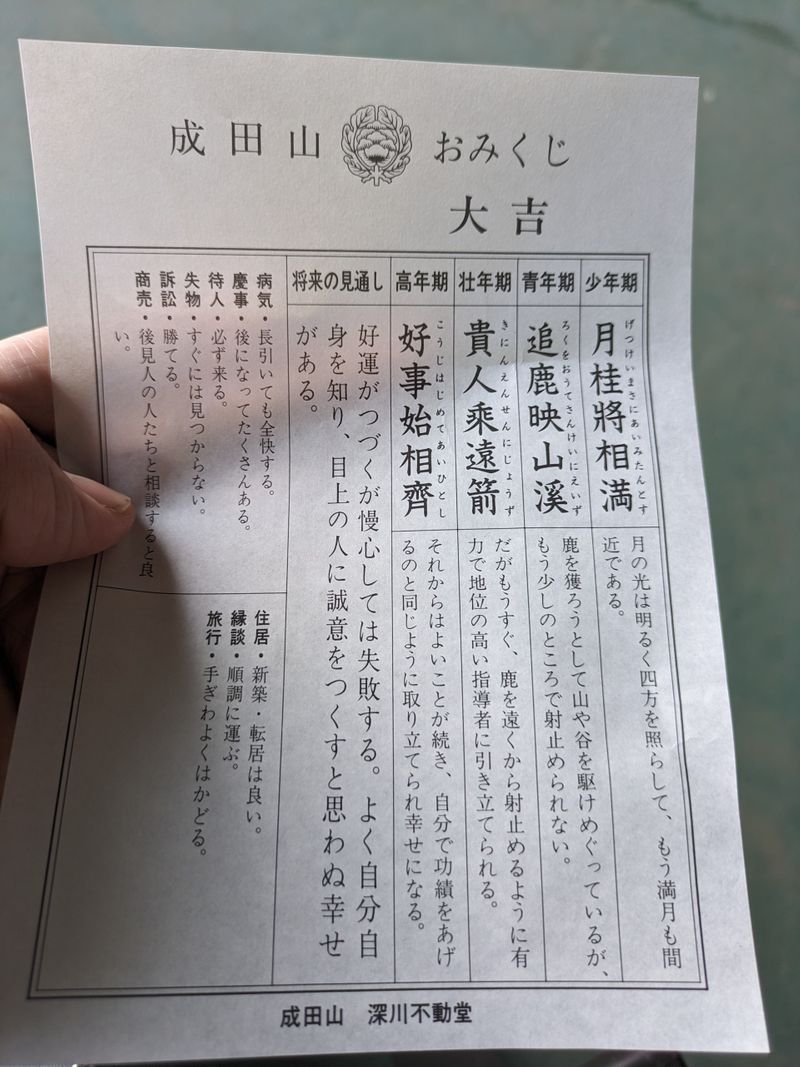 成田山 おみくじ
大吉
少年期
げつけいまさにあいみたんとす
月桂將相満
月の光は明るく四方を照らして、もう満月も間
近である。
青年期
ろくをおうてさんけいにえいず
追鹿映山溪
鹿を獲ろうとして山や谷を駆けめぐっているが、
もう少しのところで射止められない。
壮年期
きにんえんせんにじょうず
貴人乘遠箭
だがもうすぐ、鹿を遠くから射止めるように有
力で地位の高い指導者に引き立てられる。
高年期
こうじはじめてあいひとし
好事始相齊
それからはよいことが続き、自分で功績をあげ
るのと同じように取り立てられ幸せになる。
将来の見通し
好運がつづくが慢心しては失敗する。よく自分自
身を知り、目上の人に誠意をつくすと思わぬ幸せ
がある。
病気・長引いても全快する。
慶事・後になってたくさんある。
待人・必ず来る。
失物・すぐには見つからない。
訴訟・勝てる。
商売・後見人の人たちと相談すると良
い。
住居・新築・転居は良い。
縁談・順調に運ぶ。
旅行・手ぎわよくはかどる。
成田山 深川不動堂